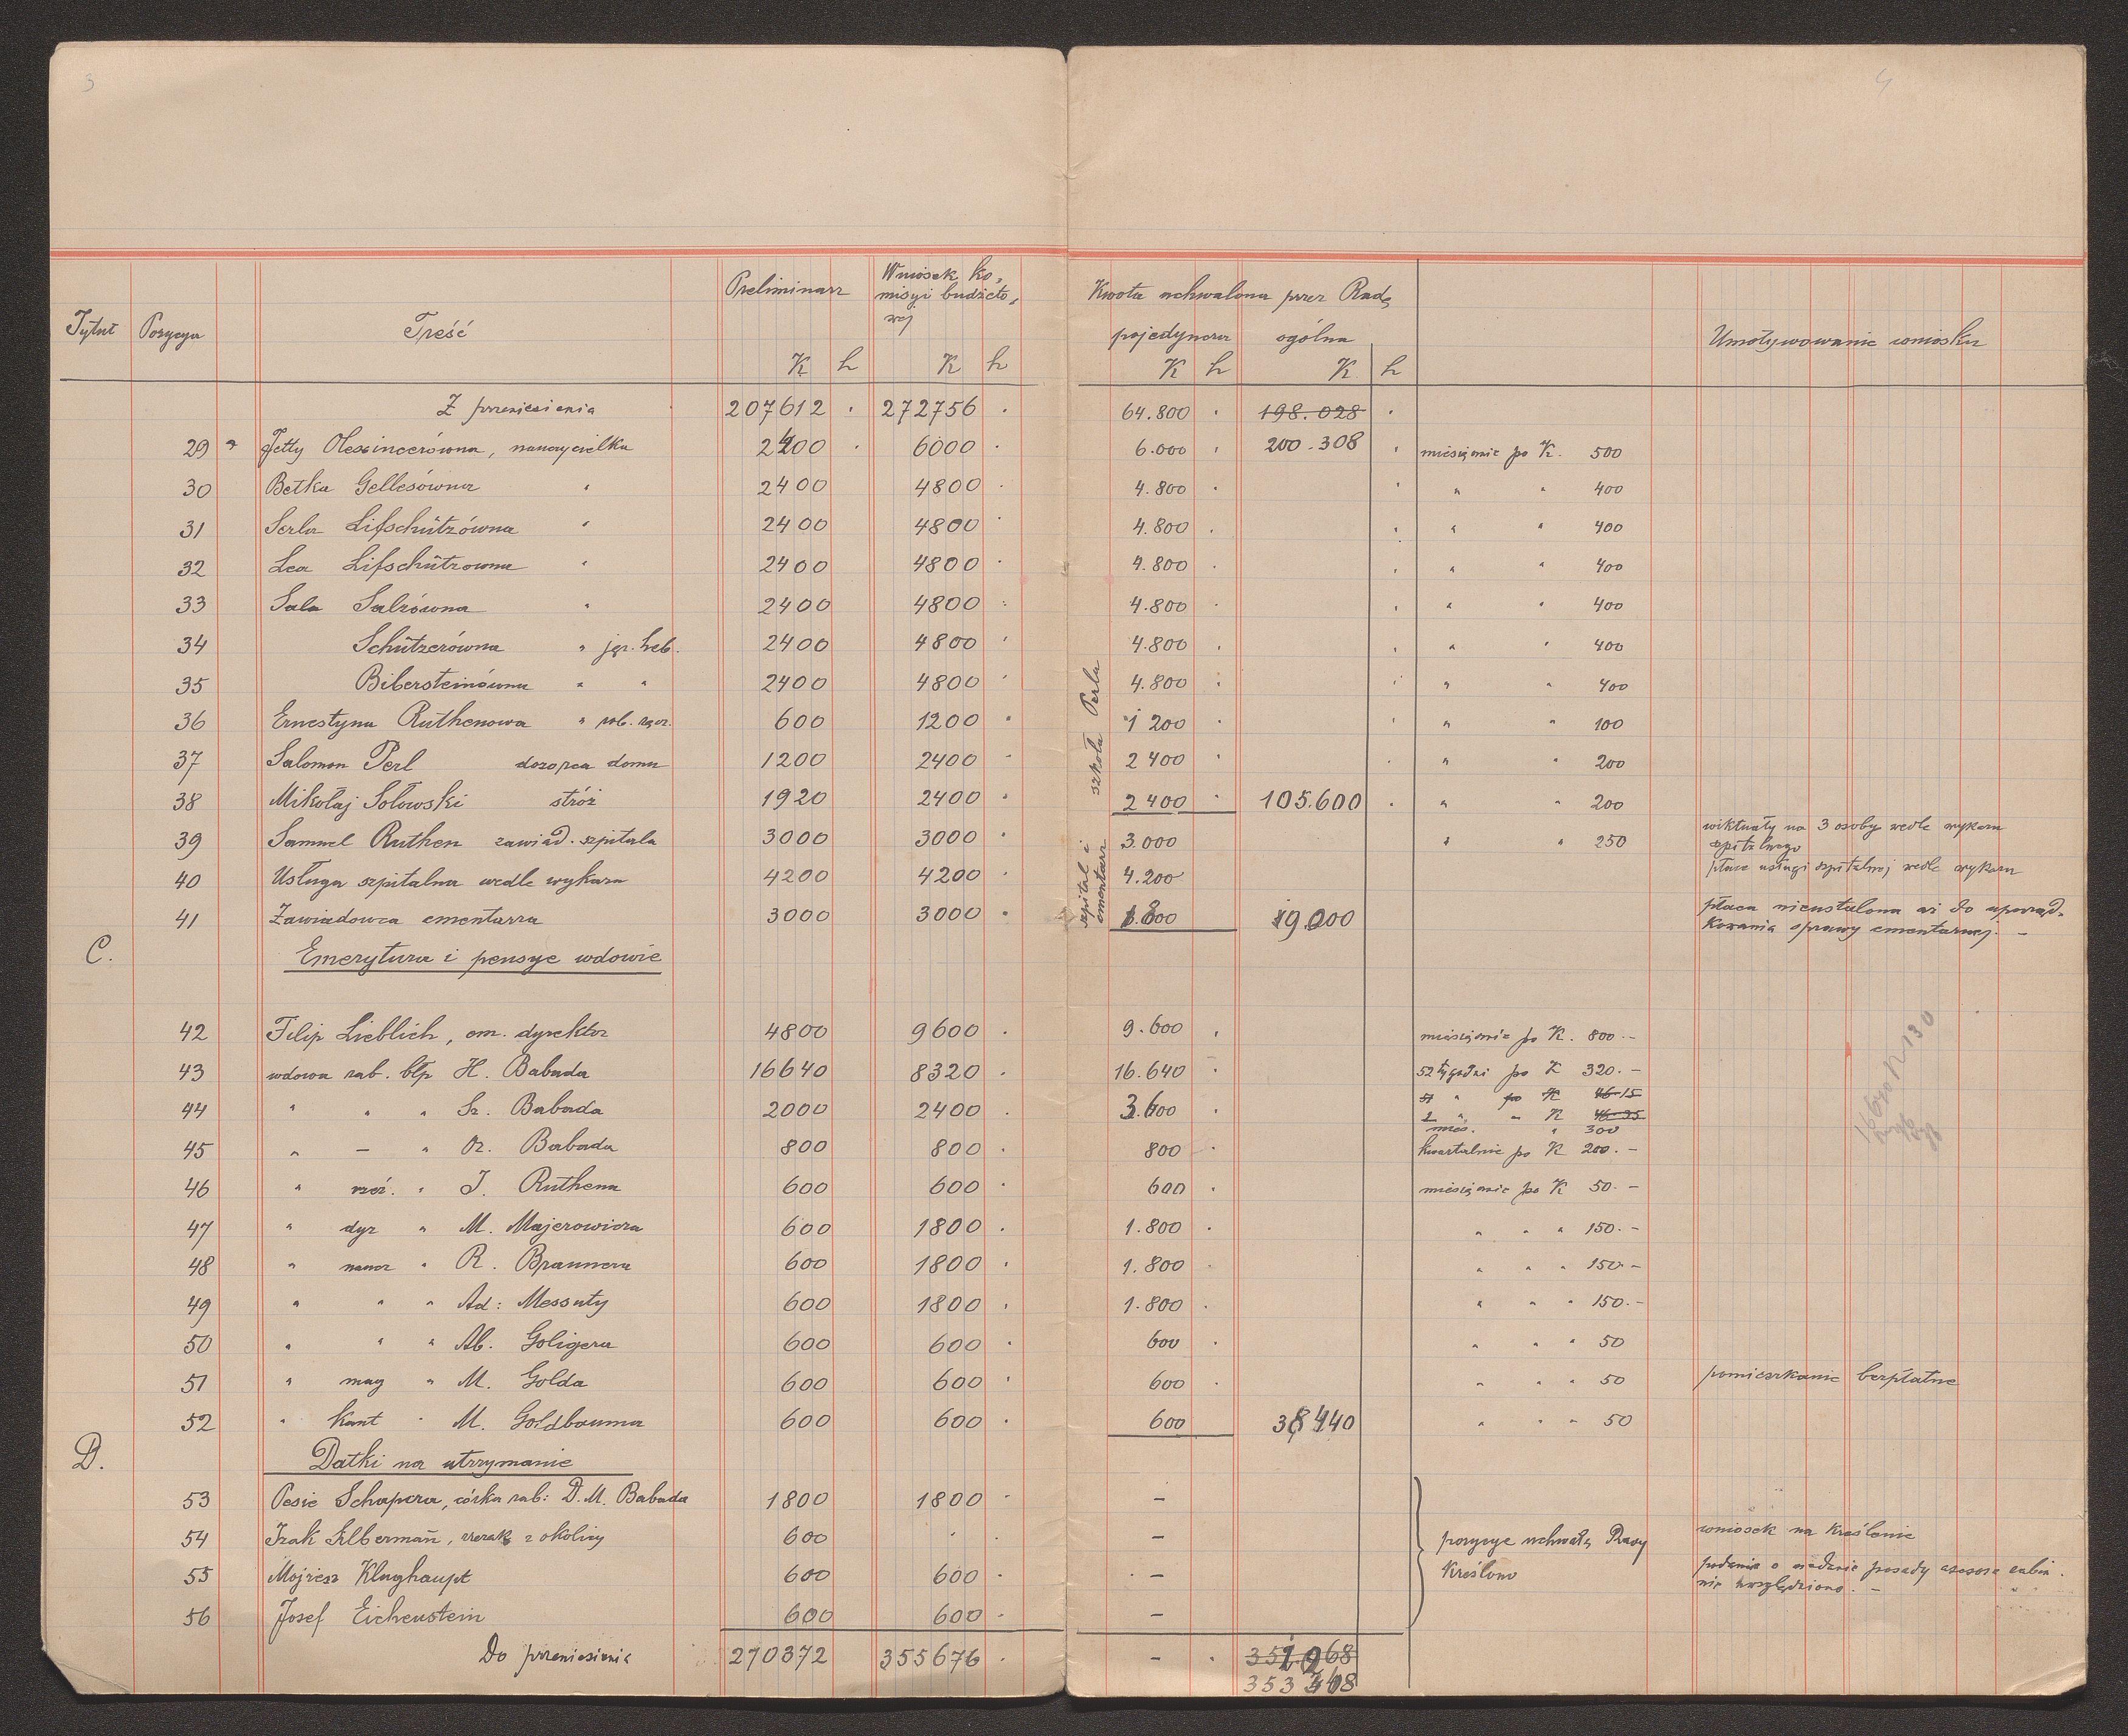 3
4
Tytuł Pozycya Treść Preliminarz Wniosek ko-
misyi budżeto-
wej Kwota uchwalona przez Radę
pojedyncza ogólna Umotywowanie wniosku
K h K h K h K h
Z przeniesienia 207612 . 272756 . 64.800 . 198.028 .
29 Jetty nauczycielka 2400 . 6000 . 6.000 . 200.308 . miesięcznie po K. 500
30 Betka Gellesówna " 2400 4800 . 4.800 . " " 400
31 Serla Lifschützówna " 2400 4800 . 4.800 . " " 400
32 Lea Lifschützowna " 2400 4800 . 4.800 . " " 400
33 Sala Salzówna " 2400 4800 . 4.800 . " " 400
34 Schützerówna " jęz. heb. 2400 4800 . 4.800 . " " 400
35 Bibersteinówna " " 2400 4800 . 4.800 . " " 400
36 Ernestyna Ruthenowa " rob. ręcz. 600 1200 . 1 200 . " " 100
37 Salomon Perl dozorca domu 1200 2400 . 2 400 . " " 200
38 Mikołaj Sołowski stróż 1920 2400 . 2 400 . 105.600 . " " 200
szkoła Perla
39 Samuel Ruthen zawiad. szpitala 3000 3000 . 3.000 " " 250 wiktuały na 3 osoby wedle wykazu
szpitalnego
40 Usługa szpitalna wedle wykazu 4200 4200 . 4.200 płace usługi szpitalnej wedle wykazu
41 Zawiadowca cmentarza 3000 3000 . 1.800 19.000 płaca nieustalona aż do uporząd-
kowania sprawy cmentarnej. –
szpital i
cmentarz
C. Emerytura i pensye wdowie
42 Filip Lieblich, em. dyrektor 4800 9600 . 9.600 . miesięcznie po K. 800.–
43 wdowa rab. błp H. Babada 16640 8320 . 16.640 . 52 tygodni po K 320.–
44 " " " Sz. Babada 2000 2400 . 3.600 . 51 " po K 46.15
1 " " K 46.35
mies. " 300
45 " – " Oz. Babada 800 800 . 800 . kwartalnie po K 200.–
46 " rzeź. " J. Ruthena 600 600 . 600 . miesięcznie po K 50.–
47 " dyr " M. Majerowicza 600 1800 . 1.800 . " " " 150.–
48 " naucz " R. Braunera 600 1800 . 1.800 . " " " 150.–
49 " " " Ad: Messuty 600 1800 . 1.800 . " " " 150.–
50 " " " Ab. Goligera 600 600 . 600 . " " " 50
51 " mag " M. Golda 600 600 . 600 . " " " 50 pomieszkanie bezpłatne
52 " kant " M. Goldbauma 600 600 . 600 38440 " " " 50
D. Datki na utrzymanie
53 Pesie Schapera, córka rab: D. M. Babada 1800 1800 . –
54 Izak Silbermañ, rzezak z okolicy 600 . . – pozycye uchwałą Rady wniosek na kreślenie
55 Mojżesz Klughaupt 600 600 . – kreślono podanie o nadanie posady asesora rabin.
nie uwzględniono. –
56 Josef Eichenstein 600 600 . –
Do przeniesienia 270372 355676 . – .